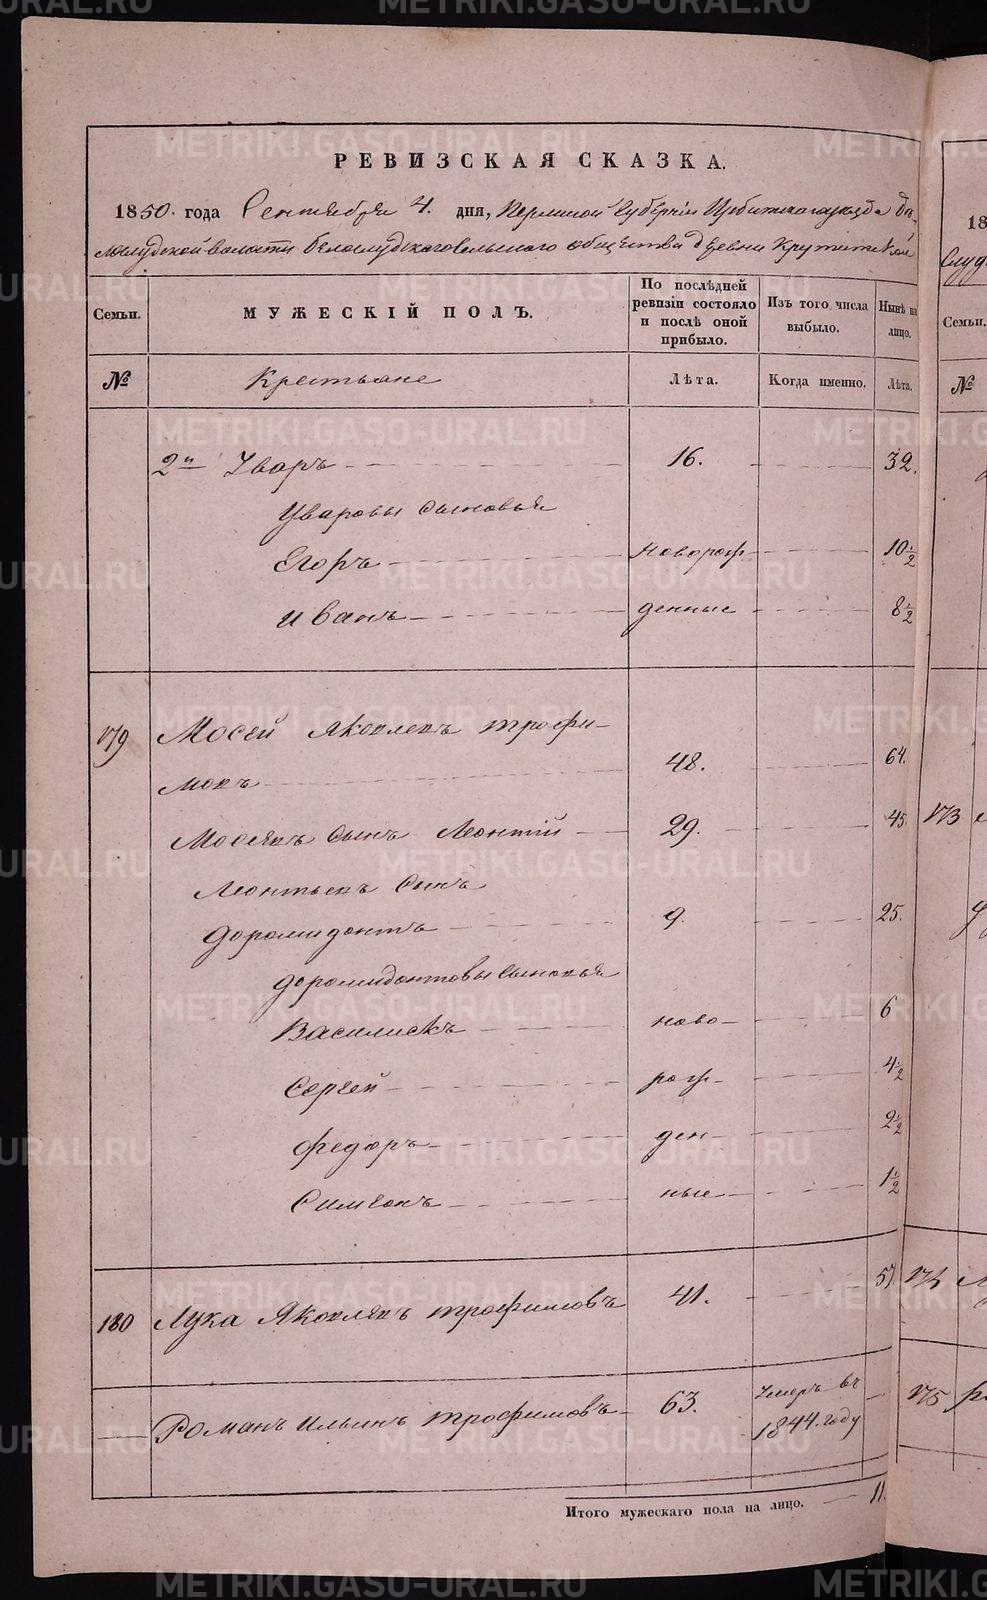 РЕВИЗСКАЯ СКАЗКА.
1850. года Сентября 4. дня, Пермской Губернии Ирбитского уезда Бе-
лослудской волости Белослудского сельского общества деревни Крутите
Семьи.
МУЖЕСКІЙ ПОЛЪ.
По послѣдней ревизіи состояло и послѣ оной прибыло.
Изъ того числа выбыло.
Нынѣ на лицо.
№
Крестьяне
Лѣта.
Когда именно.
Лѣта.
2й Уваръ 16. 32.
Уваровы сыновья
Егоръ новорож- 10 1/2
Иванъ денные 8 1/2
179 Мосей Яковлевъ Трофи-
мовъ 48. 64.
Мосеевъ сынъ Леонтій 29. 45
Леонтьевъ сынъ
Доромидонтъ 9. 25.
Доромидонтовы сыновья
Василискъ ново- 6
Сергей рож- 4 1/2
Федоръ ден 2 1/2
Симеонъ ные 1 1/2
180 Лука Яковлевъ Трофимовъ 41. 57
Романъ Ильинъ Трофимовъ 63. Умеръ въ
1844. году
Итого мужескаго пола на лицо. 11.
18
Слуд
Семьи.
№
173
174
175
METRIKI.GASO-URAL.RU